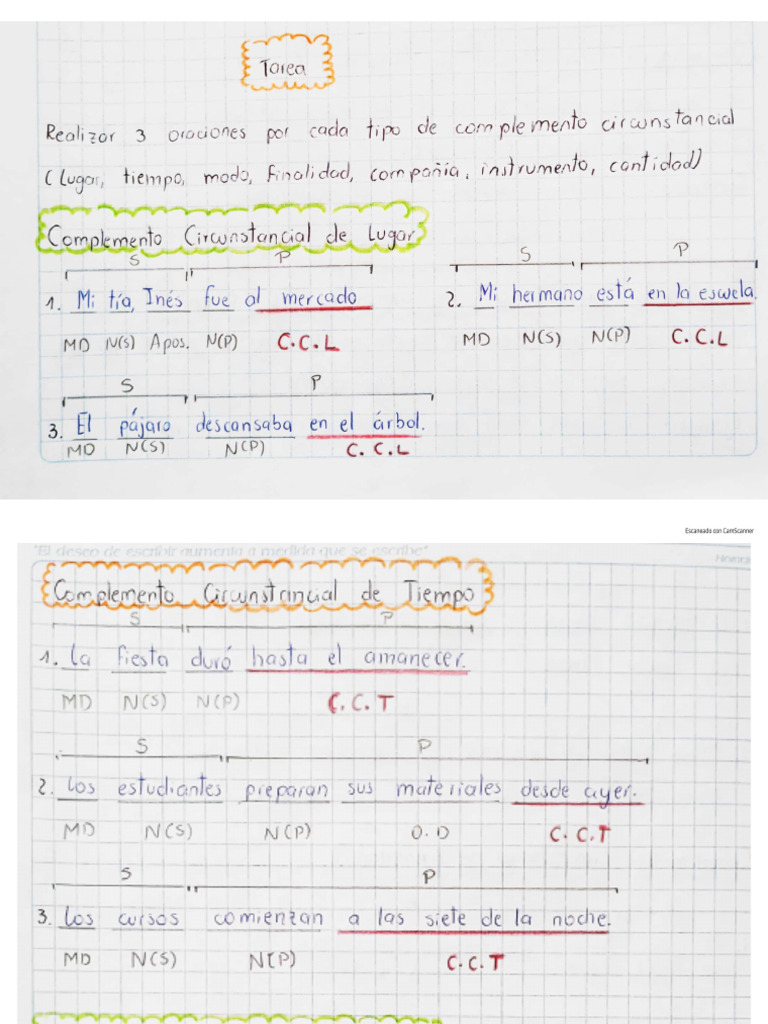 Tarea
Realizar 3 oraciones por cada tipo de complemento circunstancial
(Lugar, tiempo, modo, finalidad, compañía, instrumento, cantidad)
Complemento Circunstancial de Lugar
S P
1. Mi tía, Inés fue al mercado
MD N(S) Apos. N(P) C.C.L
S P
2. Mi hermano está en la escuela.
MD N(S) N(P) C.C.L
S P
3. El pájaro descansaba en el árbol.
MD N(S) N(P) C.C.L
Escaneado con CamScanner
"El deseo de escribir aumenta a medida que se escribe"
Complemento Circunstancial de Tiempo
S P
1. La fiesta duró hasta el amanecer.
MD N(S) N(P) C.C.T
S P
2. Los estudiantes preparan sus materiales desde ayer.
MD N(S) N(P) O.D C.C.T
S P
3. Los cursos comienzan a las siete de la noche.
MD N(S) N(P) C.C.T